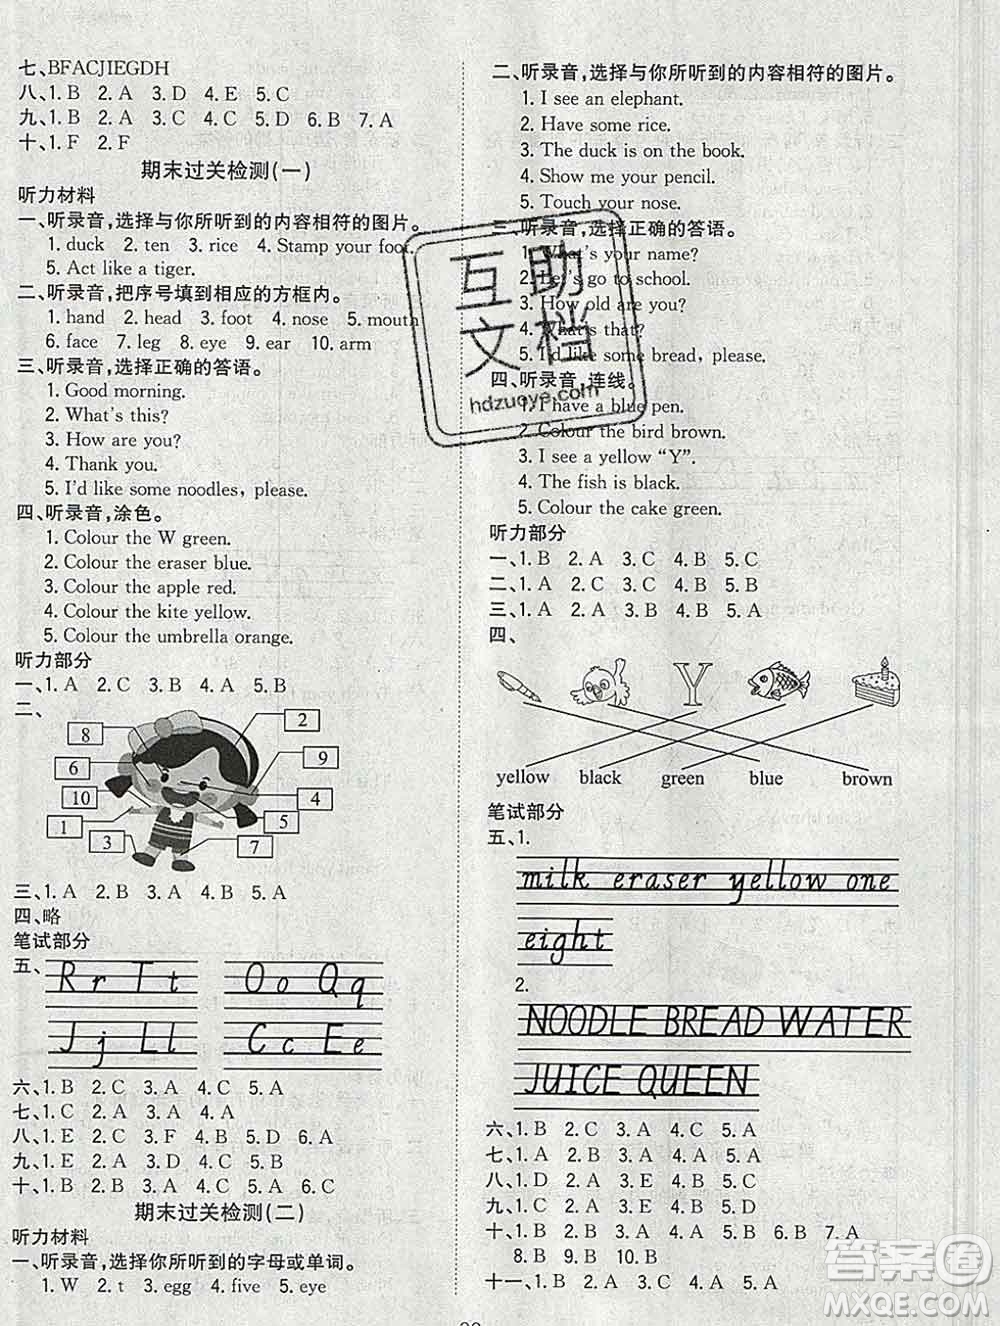 七、BFACJIEGDH
八、1. B 2. A 3. D 4. E 5. C
九、1. B 2. A 3. A 4. B 5. D 6. B 7. A
十、1. F 2. F
期末过关检测(一)
听力材料
一、听录音,选择与你所听到的内容相符的图片。
1. duck 2. ten 3. rice 4. Stamp your foot.
5. Act like a tiger.
二、听录音,把序号填到相应的方框内。
1. hand 2. head 3. foot 4. nose 5. mouth
6. face 7. leg 8. eye 9. ear 10. arm
三、听录音,选择正确的答语。
1. Good morning.
2. What's this?
3. How are you?
4. Thank you.
5. I'd like some noodles, please.
四、听录音,涂色。
1. Colour the W green.
2. Colour the eraser blue.
3. Colour the apple red.
4. Colour the kite yellow.
5. Colour the umbrella orange.
听力部分
一、1. A 2. C 3. B 4. A 5. B
二、
8 2
6 9
10 4
1 5
3 7
三、1. A 2. B 3. A 4. B 5. A
四、略
笔试部分
五、 R r T t O o Q q
J j L l C c E e
六、1. B 2. C 3. A 4. A 5. A
七、1. C 2. A 3. B 4. A 5. B
八、1. E 2. C 3. F 4. B 5. D 6. A
九、1. E 2. A 3. D 4. B 5. C
十、1. B 2. B 3. A 4. B 5. A 6. C
期末过关检测(二)
听力材料
一、听录音,选择你所听到的字母或单词。
1. W 2. t 3. egg 4. five 5. eye
二、听录音,选择与你所听到的内容相符的图片。
1. I see an elephant.
2. Have some rice.
3. The duck is on the book.
4. Show me your pencil.
5. Touch your nose.
三、听录音,选择正确的答语。
1. What's your name?
2. Let's go to school.
3. How old are you?
4. What's that?
5. I'd like some bread, please.
四、听录音,连线。
1. I have a blue pen.
2. Colour the bird brown.
3. I see a yellow “Y”.
4. The fish is black.
5. Colour the cake green.
听力部分
一、1. B 2. A 3. C 4. B 5. C
二、1. A 2. C 3. A 4. B 5. B
三、1. A 2. A 3. B 4. B 5. A
四、
Y
yellow black green blue brown
笔试部分
五、1.
milk eraser yellow one
eight
2.
NOODLE BREAD WATER
JUICE QUEEN
六、1. B 2. C 3. A 4. C 5. A
七、1. A 2. B 3. A 4. B 5. A
八、1. D 2. C 3. A 4. E 5. B
九、1. C 2. E 3. A 4. B 5. D
十、1. B 2. B 3. A 4. B 5. A 6. B 7. A
8. B 9. B 10. B
十一、1. B 2. A 3. B 4. A 5. A
互助
文档
hdzuoye.com
答案圈
MXQE.COM